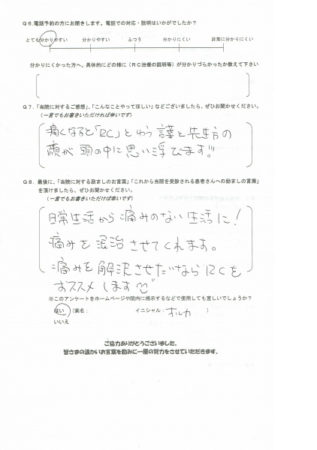 Q6.電話予約の方にお聞きします。電話での対応・説明はいかがでしたか?
とても分かりやすい　分かりやすい　ふつう　分かりにくい　非常に分かりにくい
分かりにくかった方へ、具体的にどの様に(RC治療の説明等)が分かりづらかったか教えて下さい
Q7.「当院に対するご感想」、「こんなことやってほしい」などございましたら、ぜひお聞かせください。
(一言でもお書きいただければ幸いです)
痛くなると「RC」という言葉と先生方の
顔が頭の中に思い浮びます!!
Q8.最後に、「当院に対する励ましのお言葉」「これから当院を受診される患者さんへの励ましの言葉」
を頂けましたら、ぜひお聞かせください。
(一言でもお書きいただければ幸いです)
日常生活から痛みのない生活に!
痛みを退治させてくれます。
痛みを解決させたいならRCを
おススメします
※このアンケートをホームページや院内に掲示するなどで使用しても宜しいでしょうか?
はい　(匿名:　イニシャル:オルカ　)
いいえ
ご協力ありがとうございました。
皆さまの温かいお言葉を励みに一層の努力をさせていただきます。